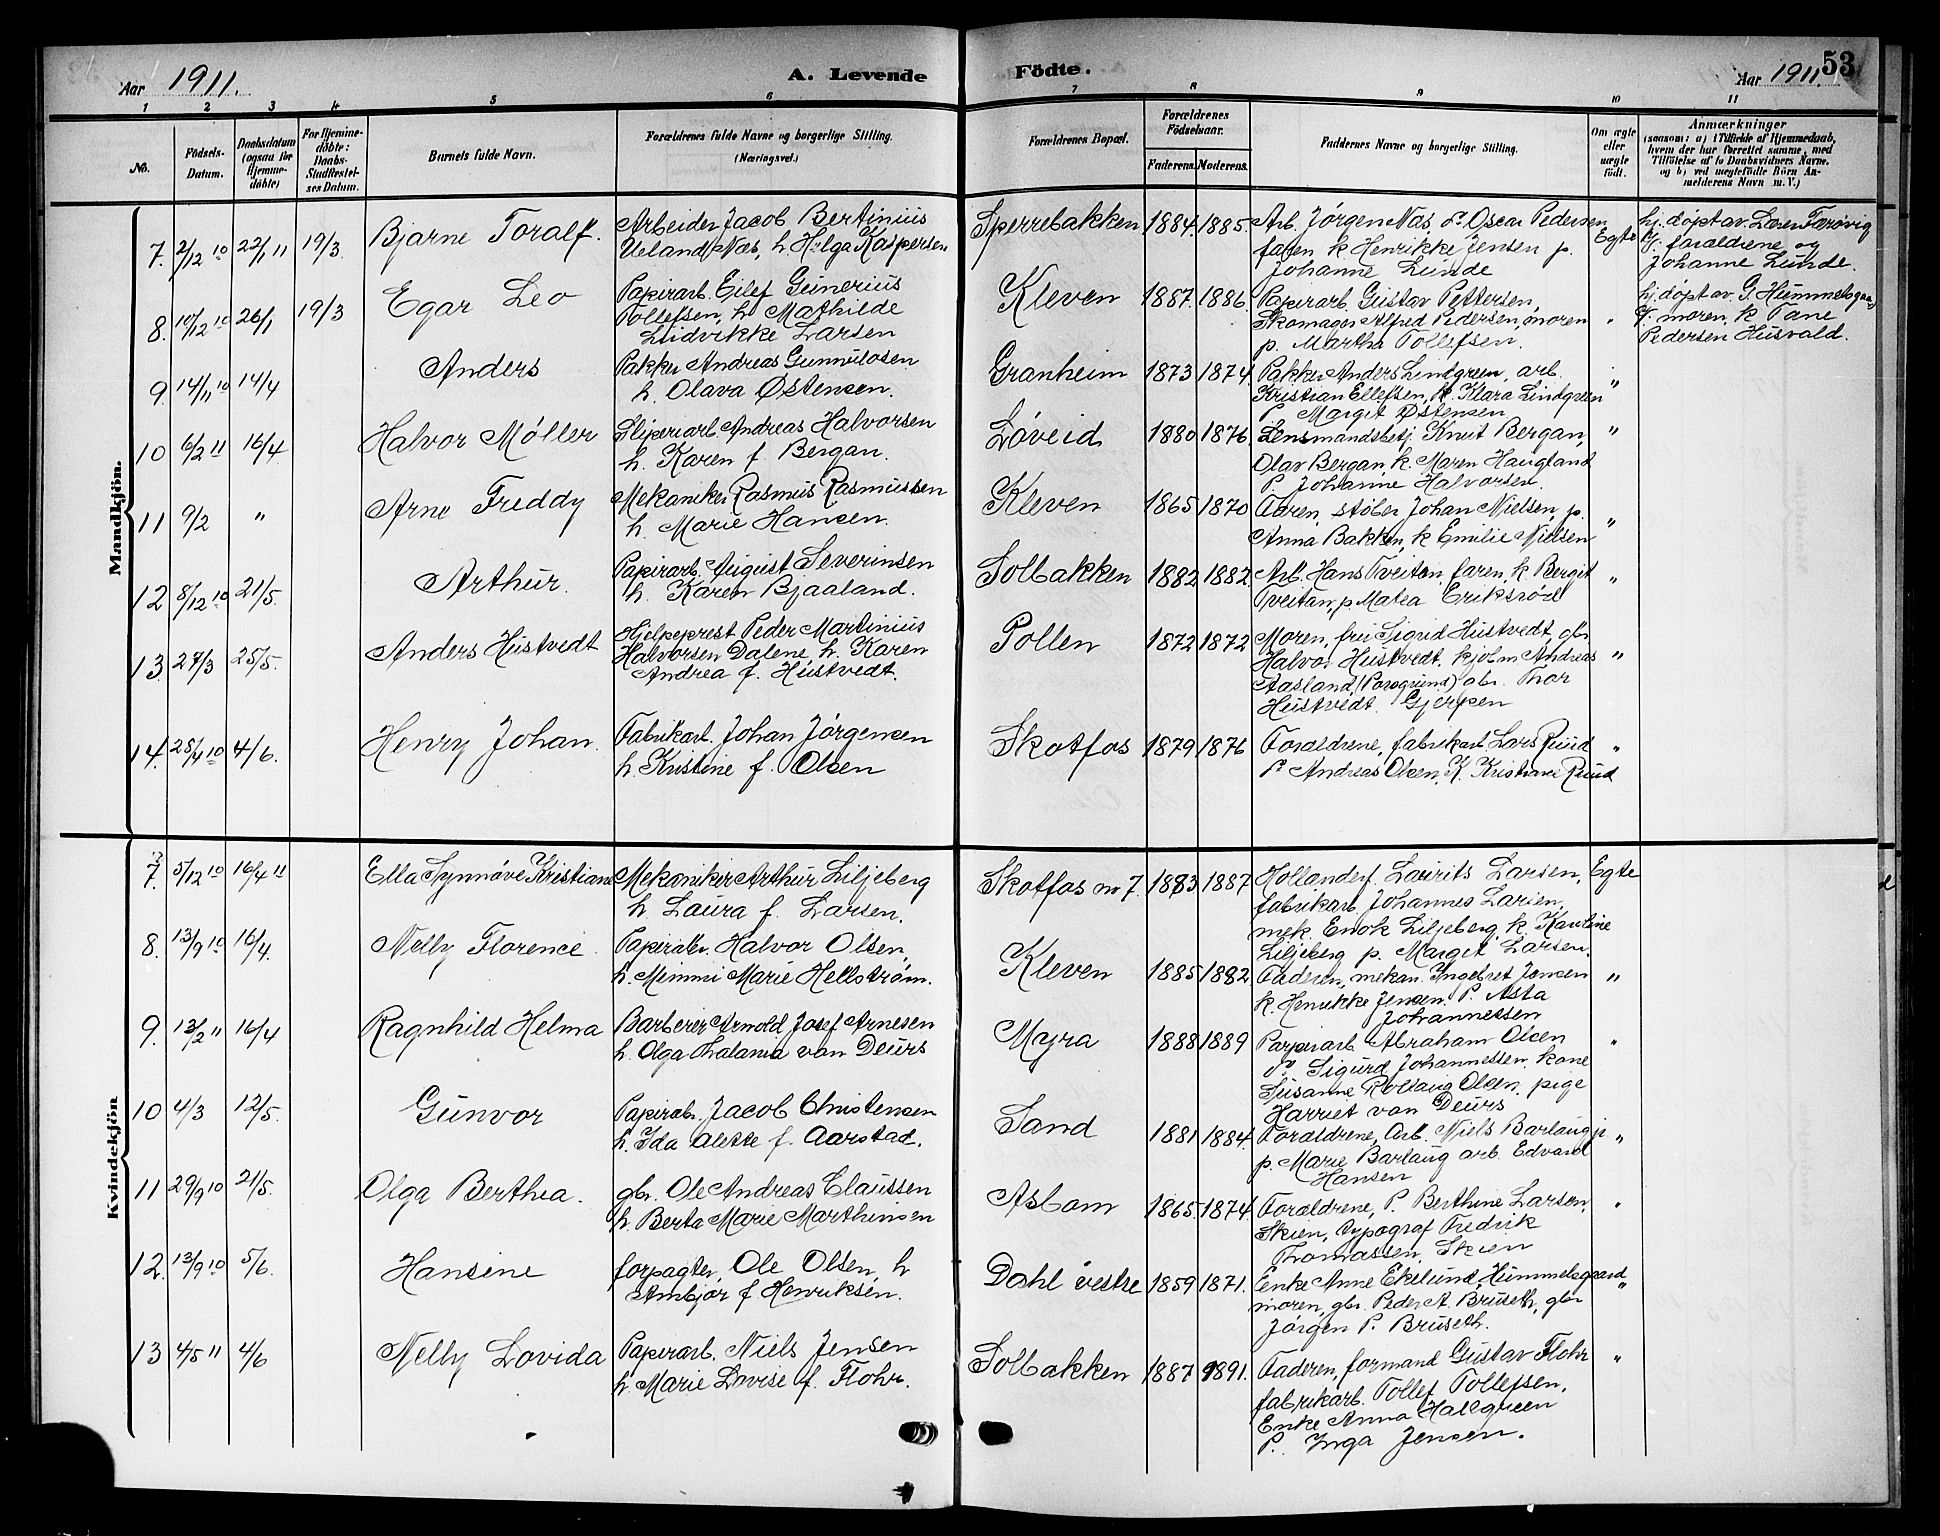 Aar 1911.
A. Levende
Födte.
Aar 1911.
53
1 2 3 4 5 6 7 8 9 10 11
No.
Födsels-Datum.
Daabsdatum (ogsaa for Hjemme-döbte)
For Hjemme-döbte: Daabs-Stadfæstel-ses Datum.
Barnets fulde Navn.
Forældrenes fulde Navne og borgerlige Stilling.
(Næringsvei.)
Forældrenes Bopæl.
Forældrenes Födselsaar.
Faderens. Moderens.
Faddernes Navne og borgerlige Stilling.
Om ægte eller uægte födt.
Anmærkninger
(saasom: a) i Tilfælde af Hjemmedaab,
hvem der har forrettet samme, med
Tilföielse af to Daabsvidners Navne.
og b) ved uægtefödte Börn An-
melderens Navn m. V.)
Mandkjön.
7. 2/12 10 22/1 11 19/3. Bjarne Toralf.
Arbeider Jacob Bertinius
Ueland Næs, h. Helga Kaspersen
Sperrebakken 1884. 1885.
Arb. Jørgen Næs, Oscar Pedersen
faren k Henrikke Jensen p.
Johanne Lunde
Egte
hj. døpt av
forældrene og
Johanne Lunde.
8. 10/12 10 26/1 19/3 Egar Leo
Papirarb. Eilef Gunerius
Tollefsen, h. Mathilde
Ludvikke Larsen
Kleven 1887. 1886.
Papirarb. Gustav Pettersen,
Skomager Alfred Pedersen, moren
p. Martha Tollefsen.
"
hj. døpt av G. Himmelsgaa
moren, k Tane
Pedersen Husvald.
9. 14/11 10 14/4 Anders
Pakker Andreas Gunnulosen
h. Olava Østensen.
Granheim 1873 1874.
Pakker Anders Lindgreen, arb.
Kristian Ellefsen, k. Klara Lindgreen
P. Margit Østensen
"
10 6/2 11 16/4. Halvor Møller
Sliperiarb. Andreas Halvorsen
h. Karen f. Bergan.
Løveid 1880 1876.
Lensmandsbetj. Knut Bergan,
Olav Bergan, k. Maren Haugland
P. Johanne Halvorsen.
"
11 9/2 " Arne Freddy
Mekaniker Rasmus Rasmussen
h. Marie Hansen.
Kleven 1865 1870
Faren, støber Johan Nielsen, p.
Anna Bakken, k Emilie Nielsen
"
12 8/12 10 21/5. Arthur.
Papirarb. August Severinsen
h. Karen Bjaaland.
Solbakken 1882 1882.
Arb. Hans Tveitan, faren, k. Bergit
Tveitan, p Matea Eriksrød
"
13. 27/3 25/5. Anders Hustvedt
Hjelpeprest Peder Martinius
Halvorsen Dalene, h. Karen
Andrea f. Hustvedt.
Pollen 1872 1872
Moren, frk Sigrid Hustvedt, gbr.
Halvor Hustvedt, kjøbm Andreas
Aasland (Porsgrund) gbr. Thor
Hustvedt. Gjerpen
"
14. 28/4 10 4/6. Henry Johan.
Fabrikarb. Johan Jørgensen
h. Kristine f. Olsen
Skotfos 1879 1876
Forældrene, fabrikarb Lars Ruud
P. Andreas Olsen, K. Kristiane Ruud
"
Kvindekjön
7. 5/12 10 16/4 11 Ella Synnøve Kristiane
Mekaniker Arthur Liljeberg
h. Laura f. Larsen.
Skotfos nr 7. 1883 1887
Hollenderf. Laurits Larsen,
fabrikarb. Johannes Larsen,
mek. Enok Liljeberg, k. Kauline
Liljeberg p. Margit Larsen.
Egte
8. 13/9 10 16/4. Nelly Florence.
Papirarb. Halvor Olsen,
h. Mimmi Marie Hellstrøm.
Kleven 1885 1882
Faderen, mekan. Ingebret Jensen
k. Henrikke Jensen. P. Asta
Johannessen
"
9. 13/2 11 16/4 Ragnhild Helma
Barberer Arnold Josef Arnesen
h. Olga Thalania van Deurs
Myra 1888 1889
Papirarb. Abraham Olsen
Sigurd Johannessen. kone
Susanne Rollaug Olsen, pige
Harriet van Deurs
"
10 4/3 12/5. Gunvor
Papirarb. Jacob Christensen
h. Ida Alette f. Aarstad.
Sand 1881 1884.
Forældrene, Arb. Niels Barlaug
p. Marie Barlaug arb. Edvard
Hansen
"
11 29/9 10 21/5. Olga Berthea.
gbr. Ole Andreas Claussen
h. Berta Marie Marthinsen
Asbom 1865. 1874.
Forældrene, P. Berthine Larsen,
Skien, Typograf Fredrik
Thomassen, Skien
"
12. 13/9 10 5/6. Hansine
forpagter, Ole Olsen, h
Ambjør f. Henriksen.
Dahl vestre 1859 1871.
Enke Anne Ekelund, Himmelsgaard
moren, gbr. Peder A. Bruseth, gbr
Jørgen P. Bruseth.
"
13 4/5 11 4/6 Nelly Lovida
Papirarb. Niels Jensen
h. Marie Lovise f. Flohr.
Solbakken 1887 1891.
Faderen, formand Gustav Flohr
fabrikarb. Tollef Tollefsen,
Enke Anna Hallgreen
P. Inga Jensen.
"